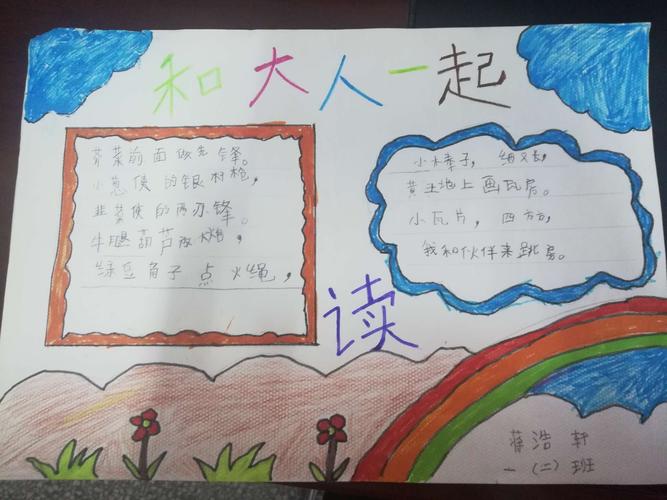 和大人一起
读
芥菜前面做先锋。
小葱使的银杆枪,
韭菜使的两刃锋。
牛腿葫芦放火炮,
绿豆角子点火绳,
小棒子,细又长,
黄土地上画瓦房。
小瓦片,四方方,
我和伙伴来跳房。
蒋浩轩
一(二)班